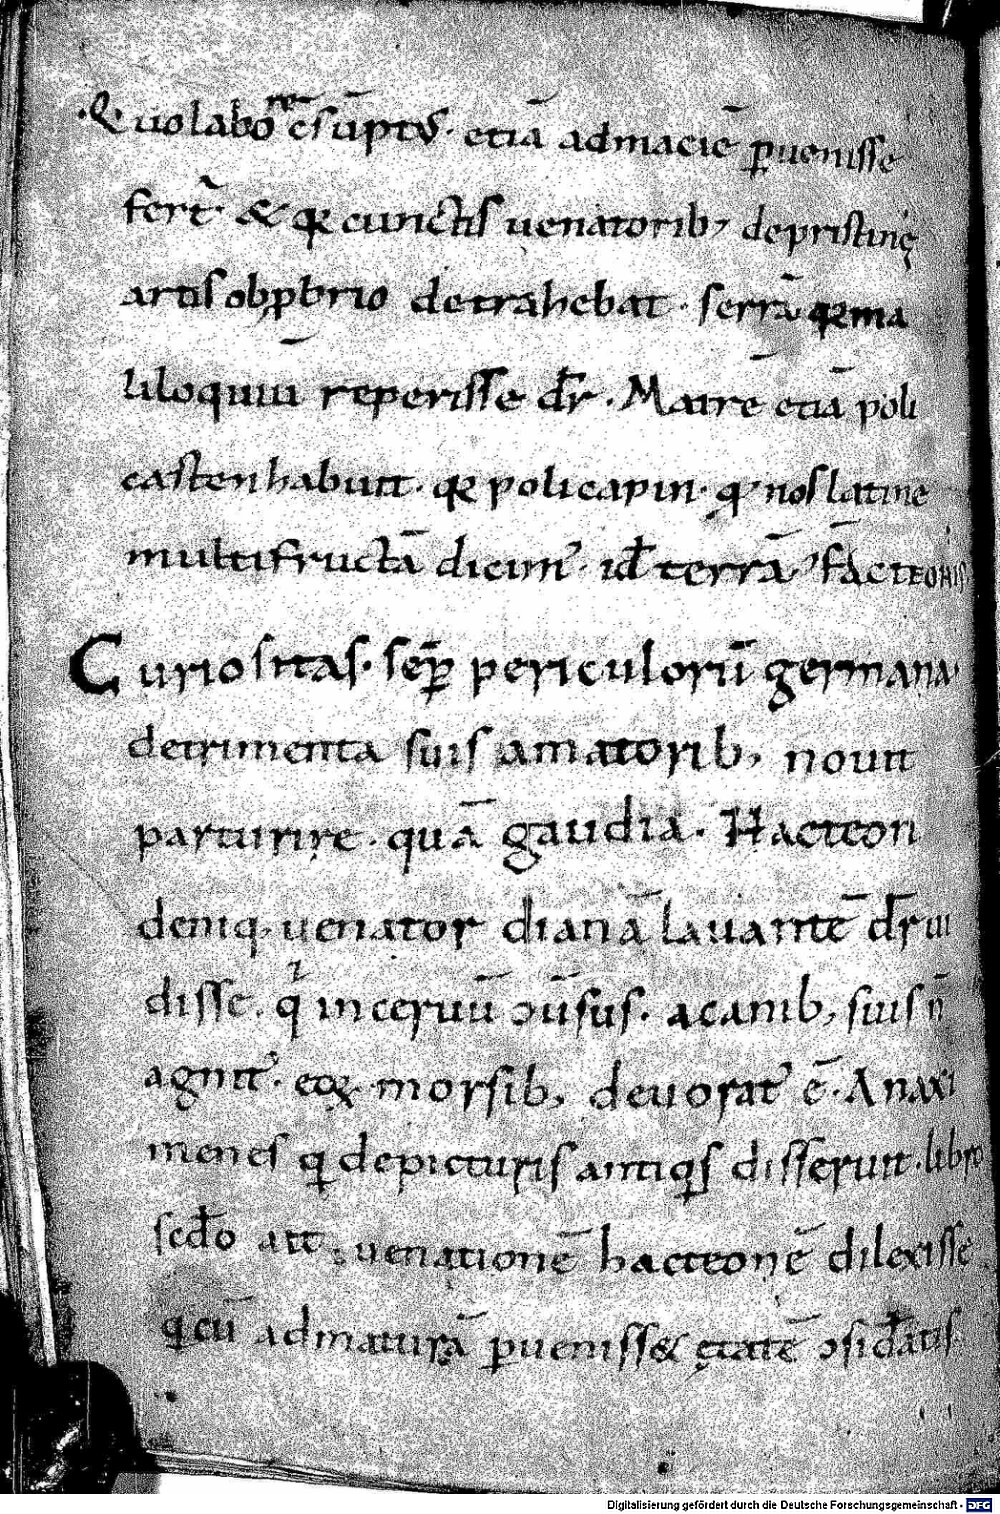 Quo labore c̄sūptꝰ· etiā ad maciē ꝑuenisse
fert̄· & qꝛ cunctis uenatorib; de pristinę
artis obꝓbrio detrahebat · serrā qꝛ ma
liloquiū reperisse dr̄ · Matrē etiā poli
casten habuit· qꝛ policapin· qͣ nos latine
multifructā dicim᷒· id̄ terrā F̄ACTEONIS
Curiositas· sēꝑ periculorū germana·
detrimenta suis amatorib; nouit
parturire · quā gaudia · Hacteon
deniq; uenator dianā lauantē dr̄ ui
disse · qͥ in ceruū ↄūsus· a canib; suis n̄
agnit᷒· eoꝝ morsib; deuorat᷒ ē · Anaxi
menes qͥ de picturis antiqͥs disseruit · libro
sc̄do ait ; uenationē hacteonē dilexisse
qͥ cū ad maturā ꝑuenisse& ętatē ↄsid̄atis
Digitalisierung gefördert durch die Deutsche Forschungsgemeinschaft - DFG